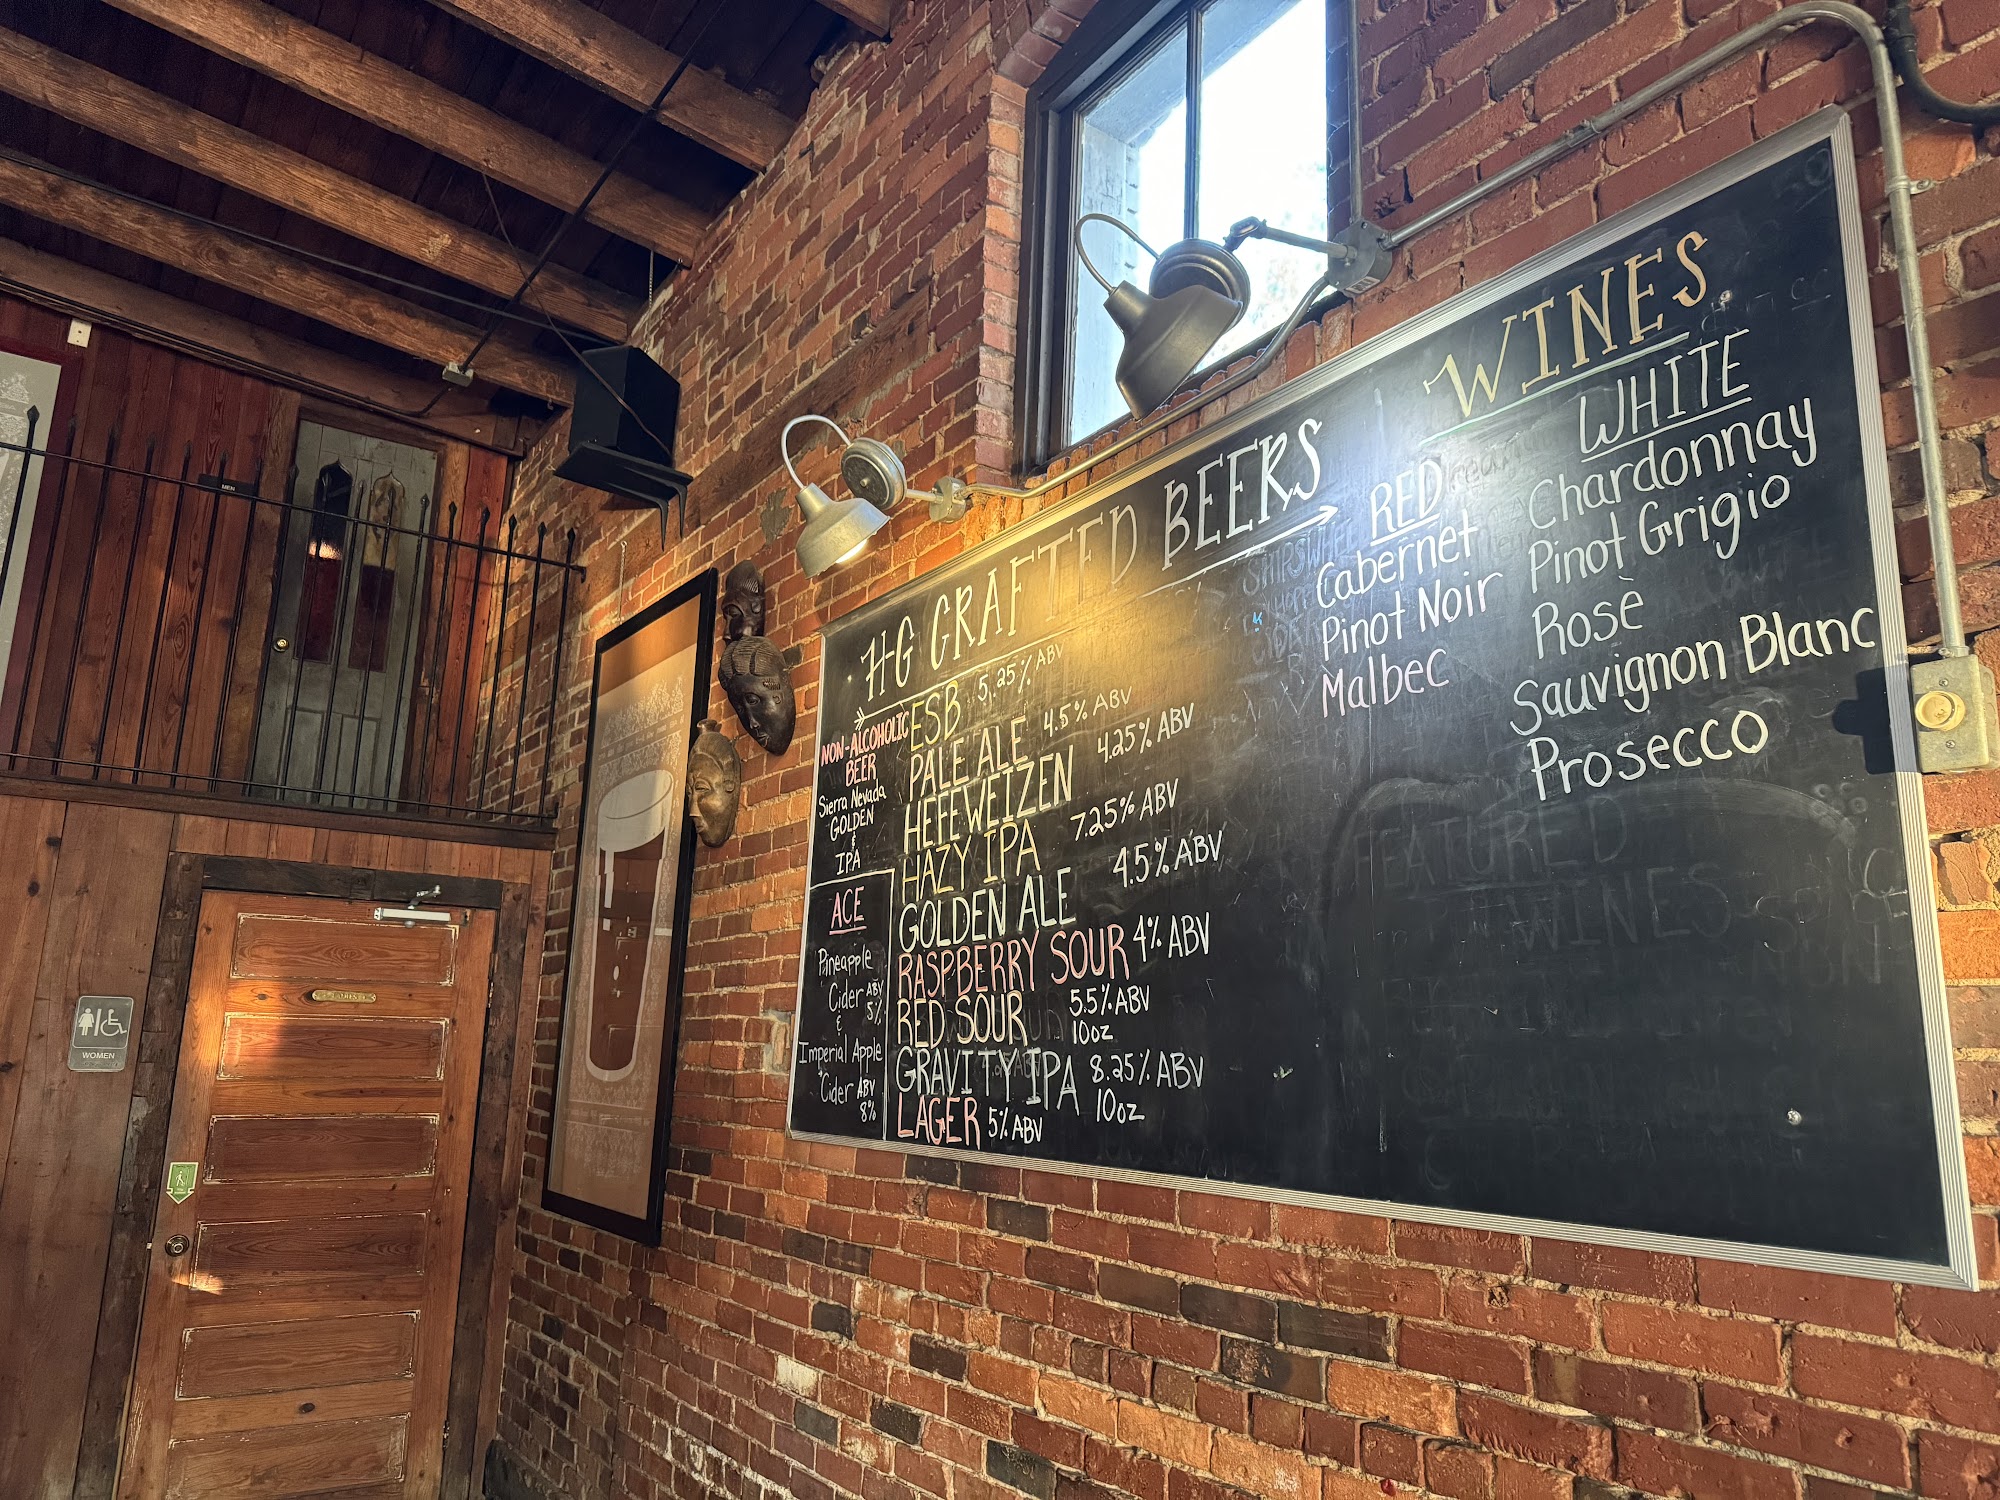 MEN
WOMEN
HG CRAFTED BEERS
NON-ALCOHOLIC
BEER
Sierra Nevada
GOLDEN
&
IPA
ACE
Pineapple
Cider ABV
5%
&
Imperial Apple
Cider ABV
8%
ESB 5.25% ABV
PALE ALE 4.5% ABV
HEFEWEIZEN 4.25% ABV
HAZY IPA 7.25% ABV
GOLDEN ALE 4.5% ABV
RASPBERRY SOUR 4% ABV
RED SOUR 5.5% ABV
10oz
GRAVITY IPA 8.25% ABV
10oz
LAGER 5% ABV
WINES
RED
Cabernet
Pinot Noir
Malbec
WHITE
Chardonnay
Pinot Grigio
Rosè
Sauvignon Blanc
Prosecco
FEATURED
WINES